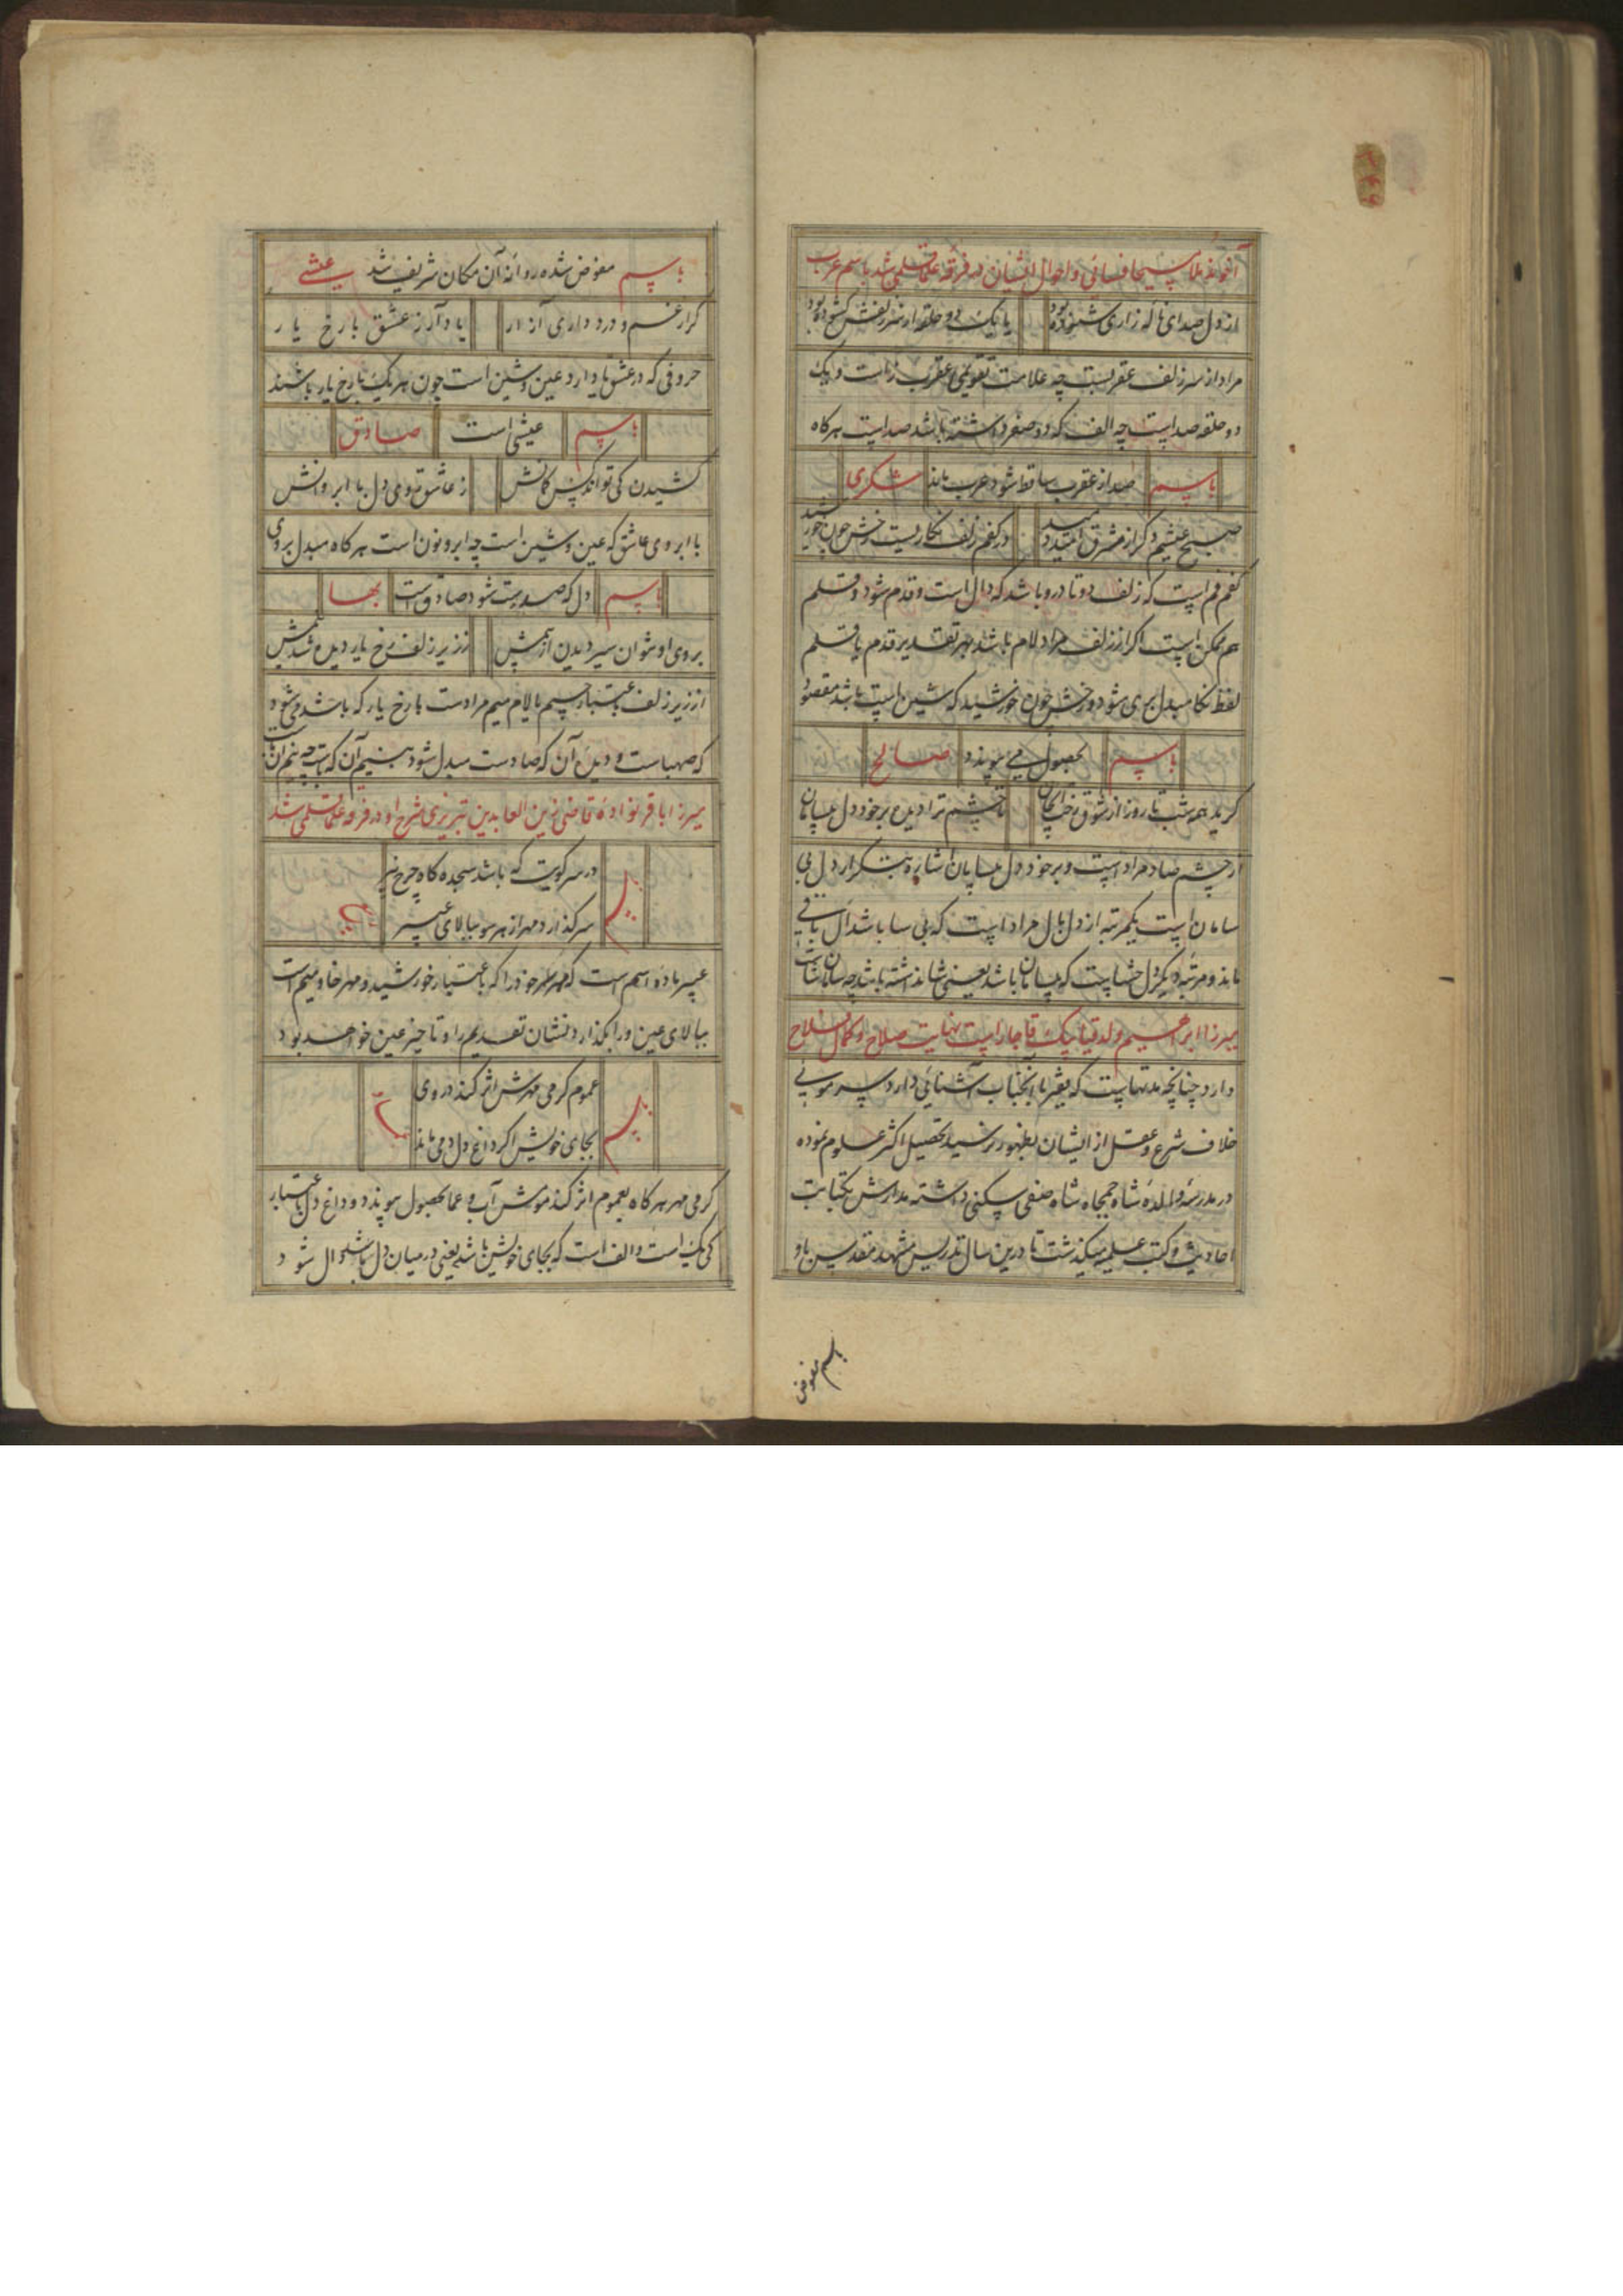 آخوند ملا مسیحا فسائی و احوال ایشان در فرقه علما قلمی شد باسم عرب
از دل صدای ناله زاری شنوده بود
یا یک دو حلقه از سر زلفش کشوده بود
مراد از سر زلف عقربست چه علامت تقویمی عقرب زاست و یک
دو حلقه صداست چه الف که دو صفر داشته باشد صداست هرکاه
باسم
صد از عقرب ساقط شود عرب ماند
شکری
صبح عیشم دکر از مشرق امید دمید
در کفم زلف نکاریست رخش چون خورشید
کفم فم است که زلف دوتا درو باشد که دال است و قدم شود و قلم
هم ممکن است اکر از زلف مراد لام باشد بهر تقدیر قدم یا قلم
لفظ نکا مبدل بری شود و رخش چون خورشید که شین است باشد مقصود
باسم
بحصول می پیوندد
صالح
کرید همه شب تا روز از شوق رخت
تا چشم ترا دیده بر خود دل بیسامان
از چشم صاد مراد است و بر خود دل بیسامان اشاره بتکرار دل بی
سامان است یکمرتبه از دل بال مراد است که بی سا باشد ال باقی
ماند و مرتبه دیکر دل حشاست که بیسامان باشد یعنی شا نداشته باشد چه سامان شاست
میرزا ابراهیم ولد قیا بیک قاجار است نهایت صلاح و کمال فلاح
دارد چنانچه مدتهاست که فقیر با آنجناب آشنائی دارد سر موئی
خلاف شرع و عقل از ایشان بظهور نرسید تحصیل اکثر علوم نموده
در مدرسه والده شاه جمجاه شاه صفی سکنی داشته مدارش بکتابت
احادیث و کتب علمیه میکذشت تا درین سال تدریس مشهد مقدس باو
باسم مفوض
باسم
مفوض شده روانه آن مکان شریف شد
عیشی
کر از غم و درد داری آزار
یاد آر ز عشق با رخ یار
حروفی که در عشق یا دارد عین و شین است چون هر یک با رخ یار باشند
باسم
عیشی است
صادق
کشیدن کی تواند کس کمانش
ز عاشق روی دل با ابروانش
با ابروی عاشق که عین و شین است چه ابرو نون است هرکاه مبدل بروی
باسم
دل که صد بیست شود صادق است
بها
بروی او نتوان سیر دیدن از بیمش
ز زیر زلف رخ یار دیده شد نیمش
از زیر زلف باعتبار جیم یا لام میم مراد است با رخ یار که یا باشد می شود
که صهباست و دیده آن که صاد است مبدل شود بنیم آن که باست چه نیم ان
میرزا باقر نواده قاضی زین العابدین تبریزی شرح او در فرقه علما قلمی شد
باسم
در سر کویت که باشد سجده کاه چرخ نیز
سر کذارد مهر از هر سو ببالای عبیر
عبیر ماده اسم است که مهر سر خود را که باعتبار خورشید و مهر خا و میم است
ببالای عین و را بکذارد نشان تقدیم را و تا خیر عین خواهد بود
باسم
عموم کرمی مهرش اثر کند در وی
بجای خویش اکر داغ دل دمی ماند
کرمی مهر هرکاه بعموم اثر کند موش آب و عما بحصول پیوندد و داغ دل باعتبار
کی یک است و الف است که بجای خویش باشد یعنی در میان دل باشد دال شود